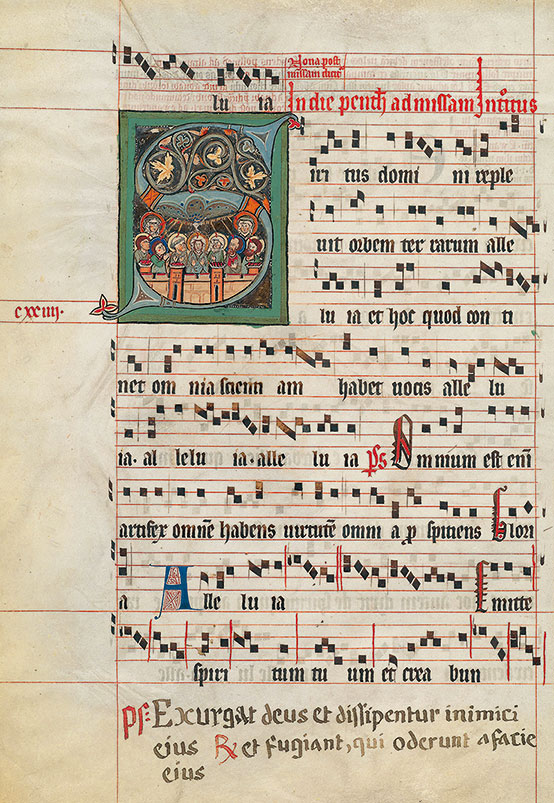 Nona post
missam dicit
lu ia In die penth ad missam Introitus
S
iri tus domi ni reple
uit orbem ter rarum alle
cxxiiij.
lu ia et hoc quod con ti
net om nia scienti am habet uocis alle lu
ia. al lelu ia. alle lu ia ps Omnium est eni
artifex omne habens uirtute omni a p spitiens Glori
a Alle lu ia Emitte
spiri tum tu um et crea bun
ps: Exurgat deus et dissipentur inimici
eius R et fugiant, qui oderunt a facie
eius